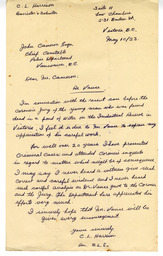 C. L. Harrison
Barrister & Solicitor
Suite 11
Law Chambers
Victoria, B.C.
May 10/33.
John Cameron Esqr.
Chief Constable
Police Department
Vancouver, B.C.
Dear Mr. Cameron.
Re Vance
In connection with the recent case before the
Coroner's Jury of the young man who was found
dead in a pool of water on the Industrial Reserve in
Victoria, I feel it is due to Mr. Vance to express my
appreciation of his careful work.
For well over 20 years I have presented
Criminal Cases and attended Coroners inquests
in regard to matters which might be of consequence.
I may say I never heard a witness give such
correct and careful evidence and I never heard
such careful analysis as Mr. Vance gave to the Coroner
and the Jury. The Department here appreciates his
efforts very much.
I sincerely hope that Mr. Vance will be
given every encouragement.
Yours sincerely
C. L. Harrison